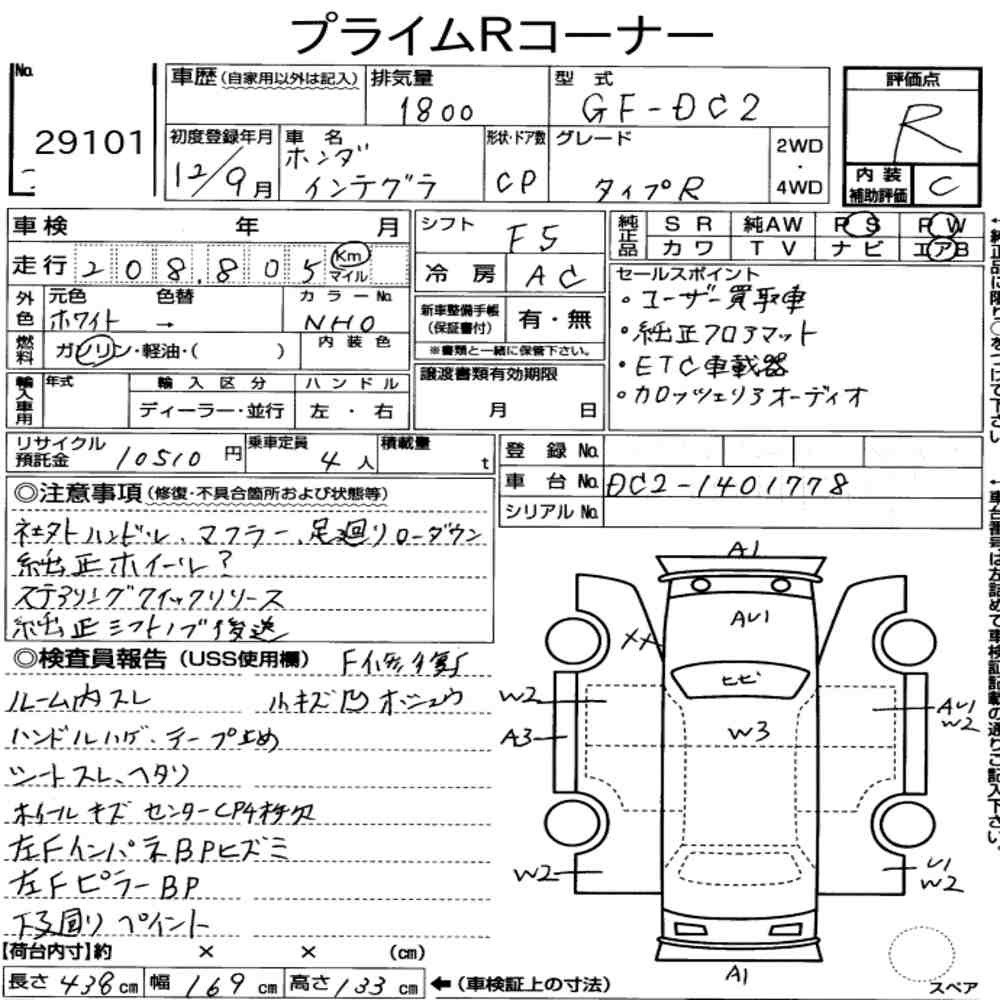 プライムRコーナー
No. 29101
車歴(自家用以外は記入) 排気量 1800 型式 GF-DC2
初度登録年月 12/9月 車名 ホンダ インテグラ 形状・ドア数 CP グレード タイプR 2WD・4WD
評価点 R
内装補助評価 C
車検 年 月
走行 208,805 Km マイル
外色 元色 ホワイト → 色替 カラーNo. NH0
燃料 ガソリン・軽油・( ) 内装色
輸入車用 年式 輸入区分 ディーラー・並行 ハンドル 左・右
シフト F5
冷房 AC
新車整備手帳(保証書付) 有・無
※書類と一緒に保管下さい。
譲渡書類有効期限 月 日
純正品 SR 純AW PS PW
カワ TV ナビ エアB
セールスポイント
・ユーザー買取車
・純正フロアマット
・ETC車載器
・カロッツェリアオーディオ
リサイクル預託金 10510円 乗車定員 4人 積載量 t
登録No.
車台No. DC2-1401778
シリアルNo.
◎注意事項(修復・不具合箇所および状態等)
社外ハンドル、マフラー、足廻りローダウン
純正ホイール?
ステアリングクイックリリース
純正シフトノブ後送
◎検査員報告(USS使用欄) F修復
ルーム内スレ 小キズ凹ホシュウ
ハンドルハゲ、テープ止め
シートスレ、ヘタリ
ホイールキズ センターCP4ケ欠
左FインパネBPヒズミ
左FピラーBP
下廻り ペイント
【荷台内寸】約 × × (cm)
長さ438cm 幅169cm 高さ133cm ←(車検証上の寸法)
A1
AU1
××
ヒビ
W2
AU1
W2
A3
W3
W2
U1
W2
A1
スペア
←純正品に限り○をつけて下さい
←車台番号は左詰めで車検証記載の通りご記入下さい。